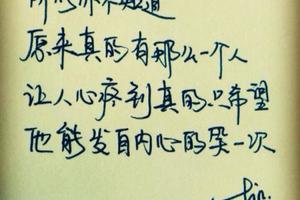 所以你不知道
原来真的有那么一个人
让人心疼到真的只希望
他能发自内心的笑一次